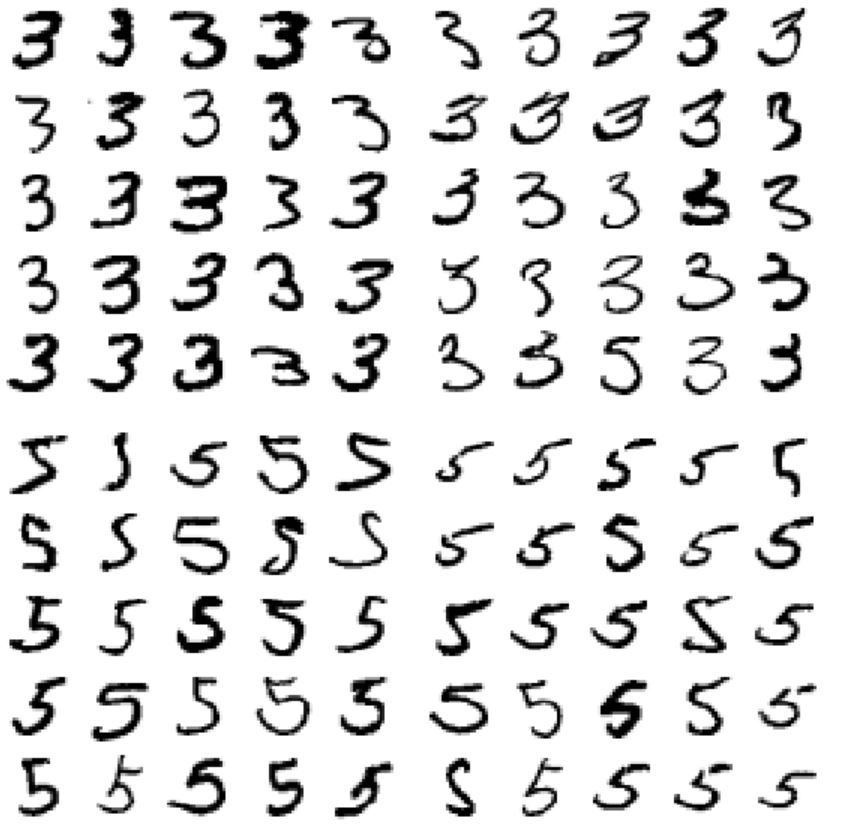 3 3 3 3 3 3 3 3 3 3
3 3 3 3 3 3 3 3 3 3
3 3 3 3 3 3 3 3 3 3
3 3 3 3 3 3 3 3 3 3
3 3 3 3 3 3 3 5 3 3
5 5 5 5 5 5 5 5 5 5
5 5 5 5 5 5 5 5 5 5
5 5 5 5 5 5 5 5 5 5
5 5 5 5 5 5 5 5 5 5
5 5 5 5 5 5 5 5 5 5